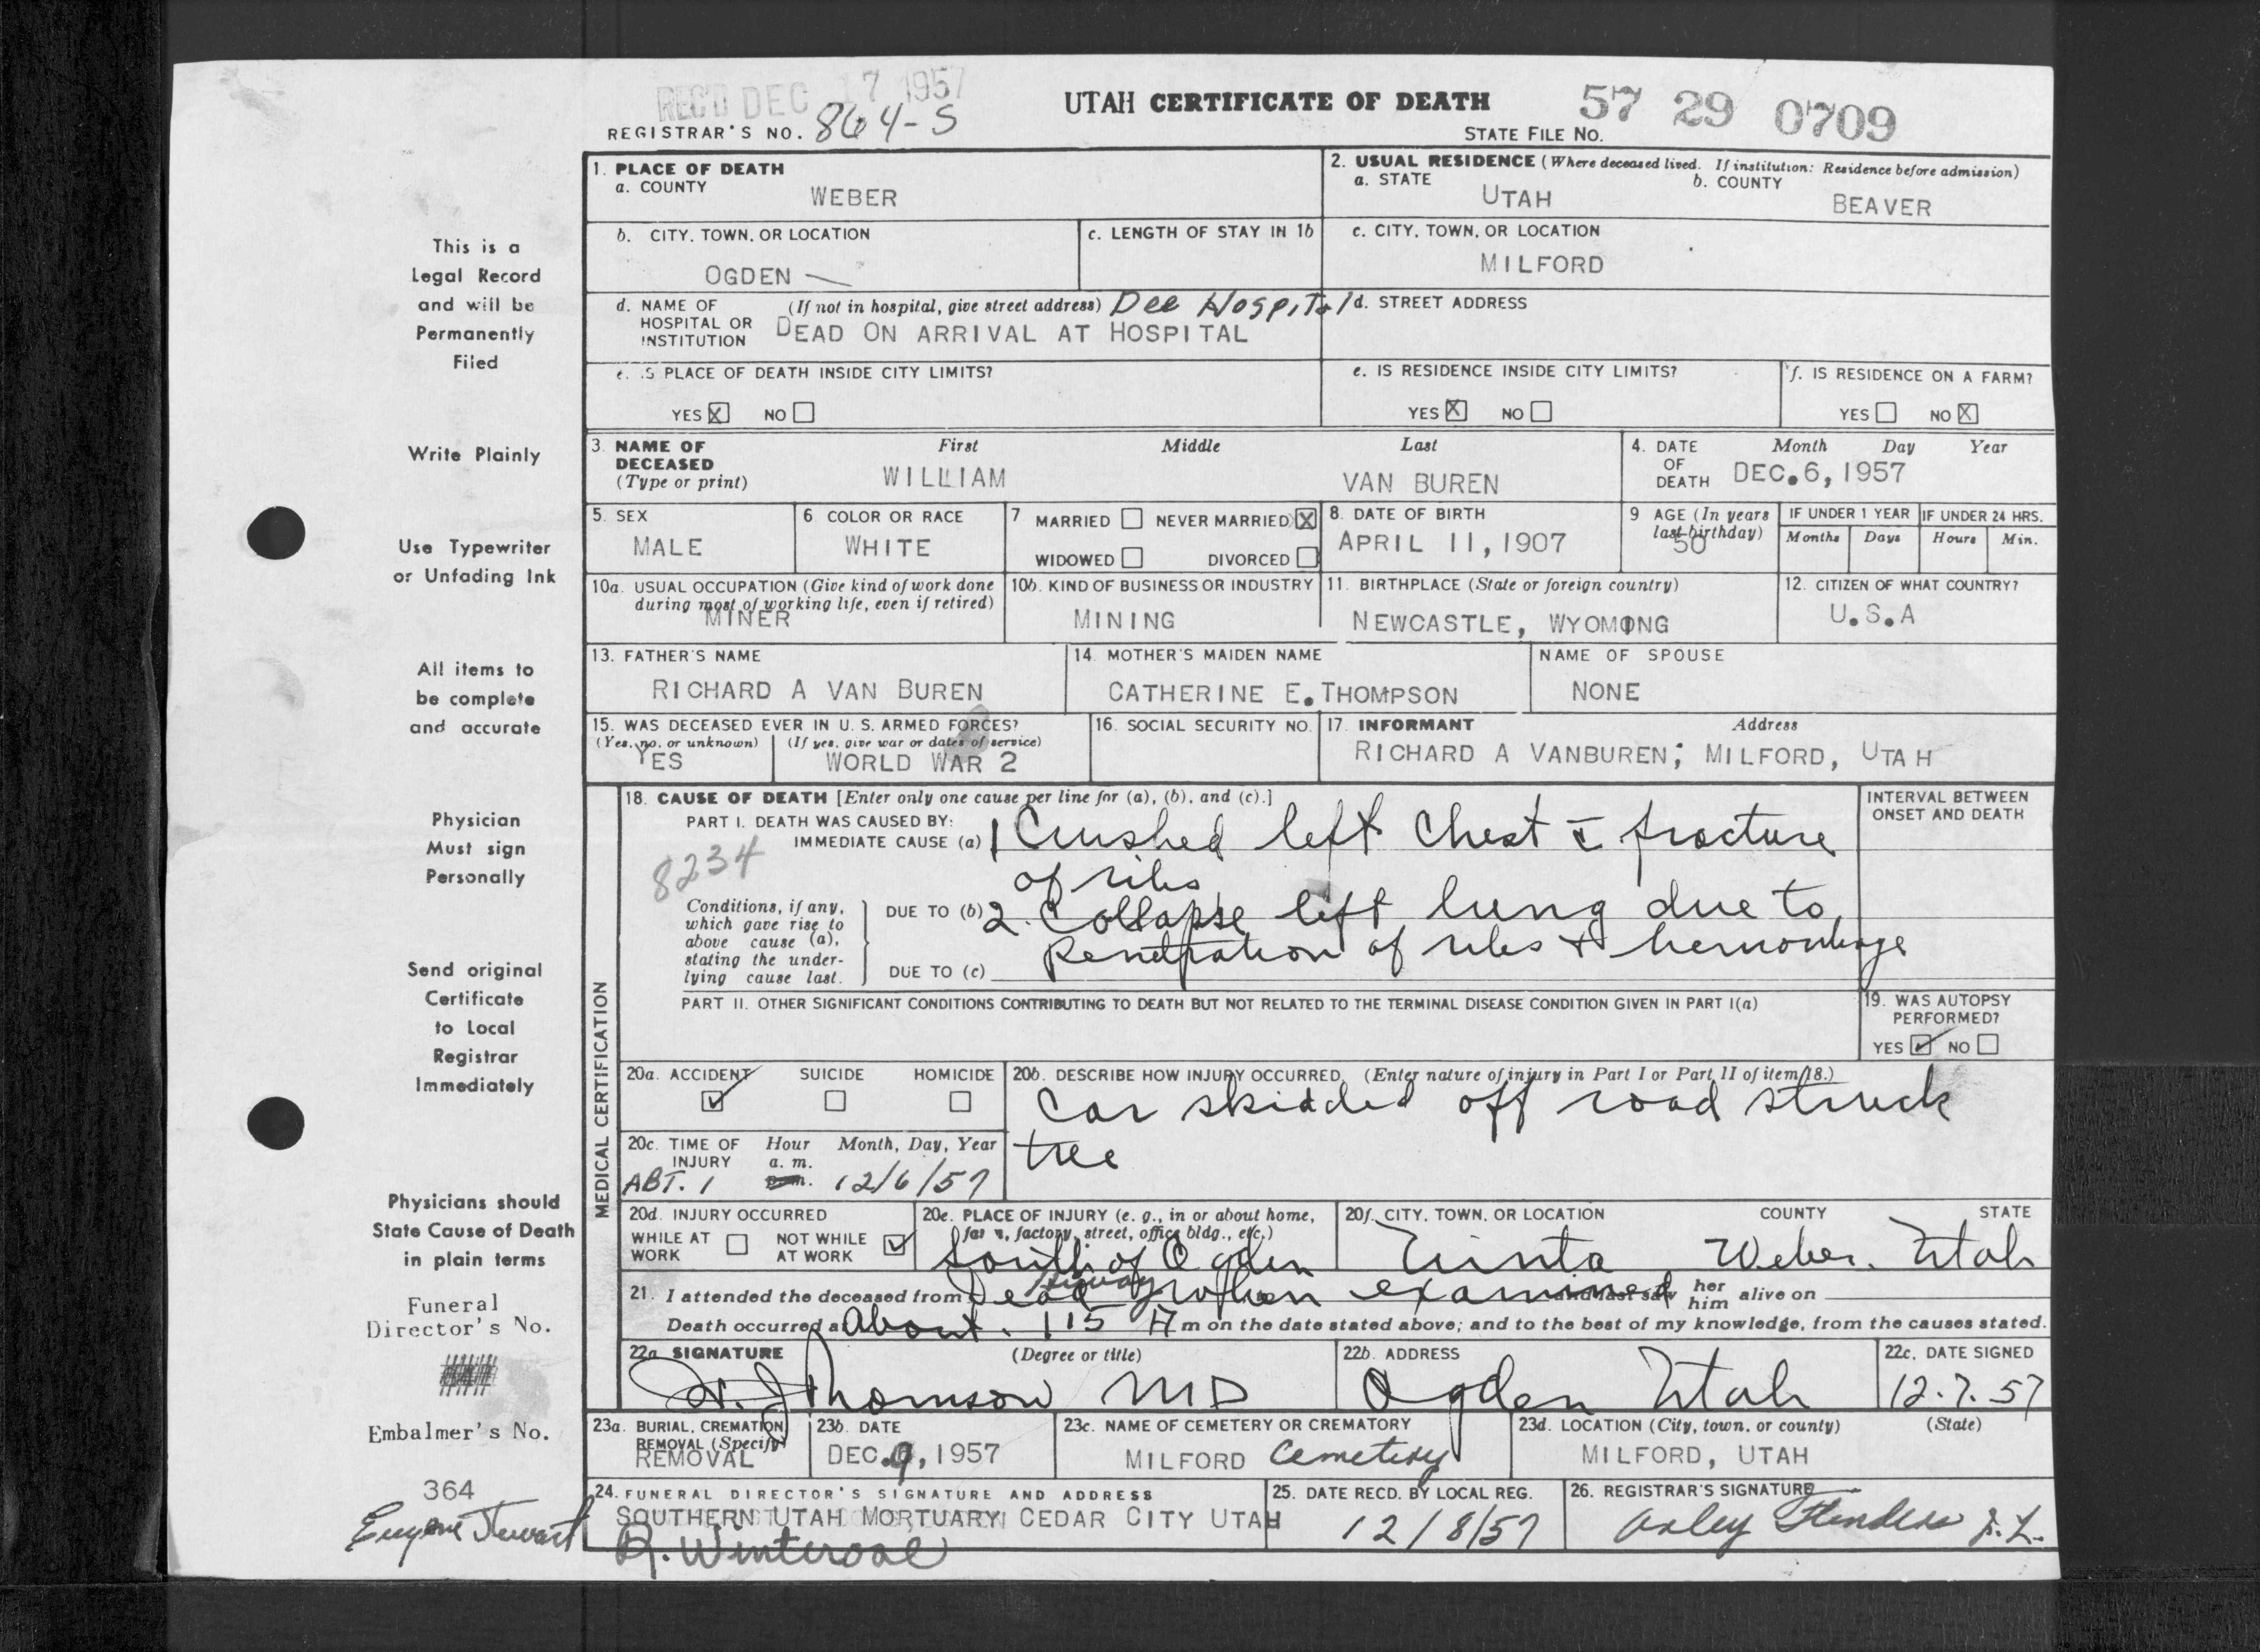 REC'D DEC 17 1957
UTAH CERTIFICATE OF DEATH
57 29 0709
REGISTRAR'S NO. 864-S
STATE FILE NO.
1. PLACE OF DEATH
a. COUNTY
WEBER
2. USUAL RESIDENCE (Where deceased lived. If institution: Residence before admission)
a. STATE
UTAH
b. COUNTY
BEAVER
b. CITY, TOWN, OR LOCATION
OGDEN
c. LENGTH OF STAY IN 1b
c. CITY, TOWN, OR LOCATION
MILFORD
d. NAME OF HOSPITAL OR INSTITUTION
(If not in hospital, give street address) Dee Hospital
DEAD ON ARRIVAL AT HOSPITAL
d. STREET ADDRESS
e. IS PLACE OF DEATH INSIDE CITY LIMITS?
YES X NO
e. IS RESIDENCE INSIDE CITY LIMITS?
YES X NO
f. IS RESIDENCE ON A FARM?
YES NO X
3. NAME OF DECEASED (Type or print)
First Middle Last
WILLIAM VAN BUREN
4. DATE OF DEATH
Month Day Year
DEC.6,1957
5. SEX
MALE
6 COLOR OR RACE
WHITE
7 MARRIED NEVER MARRIED X
WIDOWED DIVORCED
8. DATE OF BIRTH
APRIL 11,1907
9 AGE (In years last birthday)
50
IF UNDER 1 YEAR
Months Days
IF UNDER 24 HRS.
Hours Min.
10a. USUAL OCCUPATION (Give kind of work done during most of working life, even if retired)
MINER
10b. KIND OF BUSINESS OR INDUSTRY
MINING
11. BIRTHPLACE (State or foreign country)
NEWCASTLE, WYOMING
12. CITIZEN OF WHAT COUNTRY?
U.S.A
13. FATHER'S NAME
RICHARD A VAN BUREN
14. MOTHER'S MAIDEN NAME
CATHERINE E.THOMPSON
NAME OF SPOUSE
NONE
15. WAS DECEASED EVER IN U. S. ARMED FORCES?
(Yes, no, or unknown) (If yes, give war or dates of service)
YES WORLD WAR 2
16. SOCIAL SECURITY NO.
17. INFORMANT Address
RICHARD A VANBUREN; MILFORD, UTAH
MEDICAL CERTIFICATION
18. CAUSE OF DEATH [Enter only one cause per line for (a), (b), and (c).]
INTERVAL BETWEEN ONSET AND DEATH
PART I. DEATH WAS CAUSED BY:
IMMEDIATE CAUSE (a) 1 Crushed left chest c̄ fracture
of ribs
8234
Conditions, if any, which gave rise to above cause (a), stating the underlying cause last.
DUE TO (b) 2. Collapse left lung due to
penetration of ribs + hemorrhage
DUE TO (c)
PART II. OTHER SIGNIFICANT CONDITIONS CONTRIBUTING TO DEATH BUT NOT RELATED TO THE TERMINAL DISEASE CONDITION GIVEN IN PART I(a)
19. WAS AUTOPSY PERFORMED?
YES ✓ NO
20a. ACCIDENT ✓ SUICIDE HOMICIDE
20b. DESCRIBE HOW INJURY OCCURRED. (Enter nature of injury in Part I or Part II of item 18.)
Car skidded off road struck
tree
20c. TIME OF INJURY
Hour Month, Day, Year
a. m.
p. m.
ABT. 1 12/6/57
20d. INJURY OCCURRED
WHILE AT WORK NOT WHILE AT WORK ✓
20e. PLACE OF INJURY (e. g., in or about home, farm, factory, street, office bldg., etc.)
South of Ogden
Hiway
20f. CITY, TOWN, OR LOCATION COUNTY STATE
Uinta Weber. Utah
21. I attended the deceased from Dead when examined and last saw her him alive on
Death occurred at About 1 15 A m on the date stated above; and to the best of my knowledge, from the causes stated.
22a. SIGNATURE (Degree or title)
Thomson MD
22b. ADDRESS
Ogden Utah
22c. DATE SIGNED
12.7.57
23a. BURIAL, CREMATION, REMOVAL (Specify)
REMOVAL
23b. DATE
DEC.9,1957
23c. NAME OF CEMETERY OR CREMATORY
MILFORD Cemetery
23d. LOCATION (City, town, or county) (State)
MILFORD, UTAH
24. FUNERAL DIRECTOR'S SIGNATURE AND ADDRESS
SOUTHERN UTAH MORTUARY CEDAR CITY UTAH
25. DATE RECD. BY LOCAL REG.
12/8/57
26. REGISTRAR'S SIGNATURE
This is a
Legal Record
and will be
Permanently
Filed
Write Plainly
Use Typewriter
or Unfading Ink
All items to
be complete
and accurate
Physician
Must sign
Personally
Send original
Certificate
to Local
Registrar
Immediately
Physicians should
State Cause of Death
in plain terms
Funeral
Director's No.
Embalmer's No.
364
Eugene Stewart